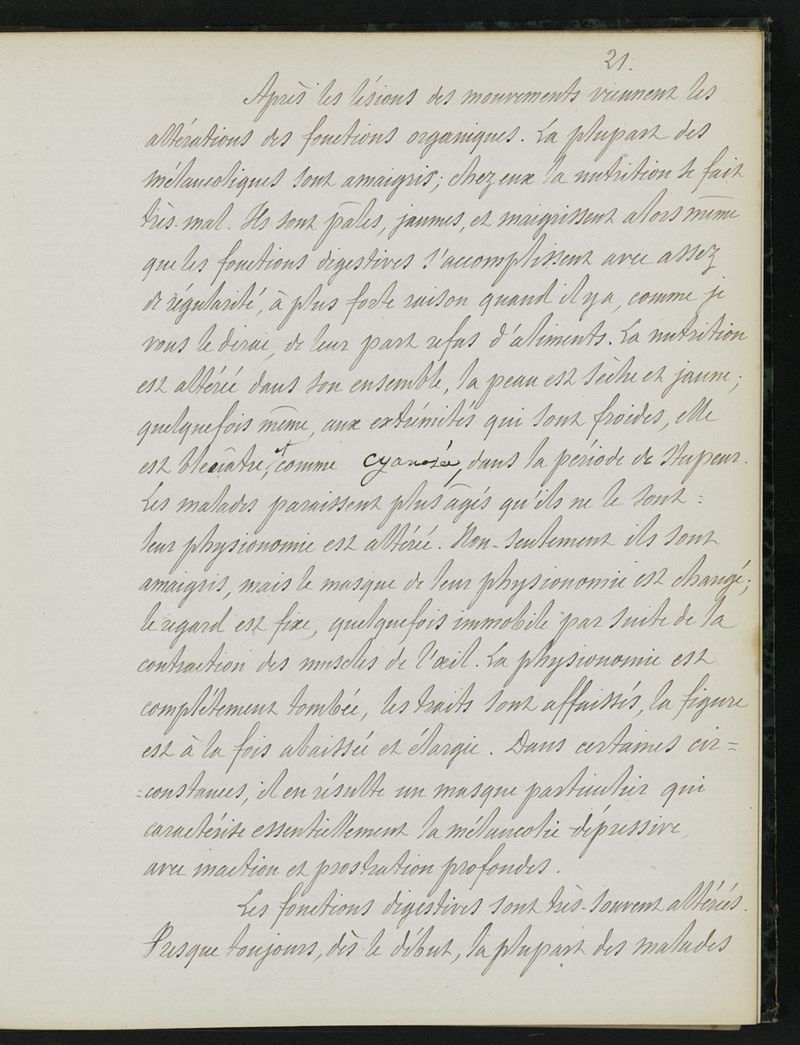 21.
Après les lésions des mouvements viennent les
altérations des fonctions organiques. La plupart des
mélancoliques sont amaigris; chez eux la nutrition se fait
très-mal. Ils sont pâles, jaunes, et maigrissent alors même
que les fonctions digestives s'accomplissent avec assez
de régularité, à plus forte raison quand il y a, comme je
vous le dirai, de leur part refus d'aliments. La nutrition
est altérée dans son ensemble, la peau est sèche et jaune;
quelquefois même, aux extrémités qui sont froides, elle
est bleuâtre, et comme cyanosée, dans la période de stupeur.
Les malades paraissent plus âgés qu'ils ne le sont =
leur physionomie est altérée. Non-seulement ils sont
amaigris, mais le masque de leur physionomie est changé;
le regard est fixe, quelquefois immobile par suite de la
contraction des muscles de l'œil. La physionomie est
complétement tombée, les traits sont affaissés, la figure
est à la fois abaissée et élargie. Dans certaines cir=
=constances, il en résulte un masque particulier qui
caractérise essentiellement la mélancolie dépressive,
avec inaction et prostration profondes.
Les fonctions digestives sont très-souvent altérées.
Presque toujours, dès le début, la plupart des malades